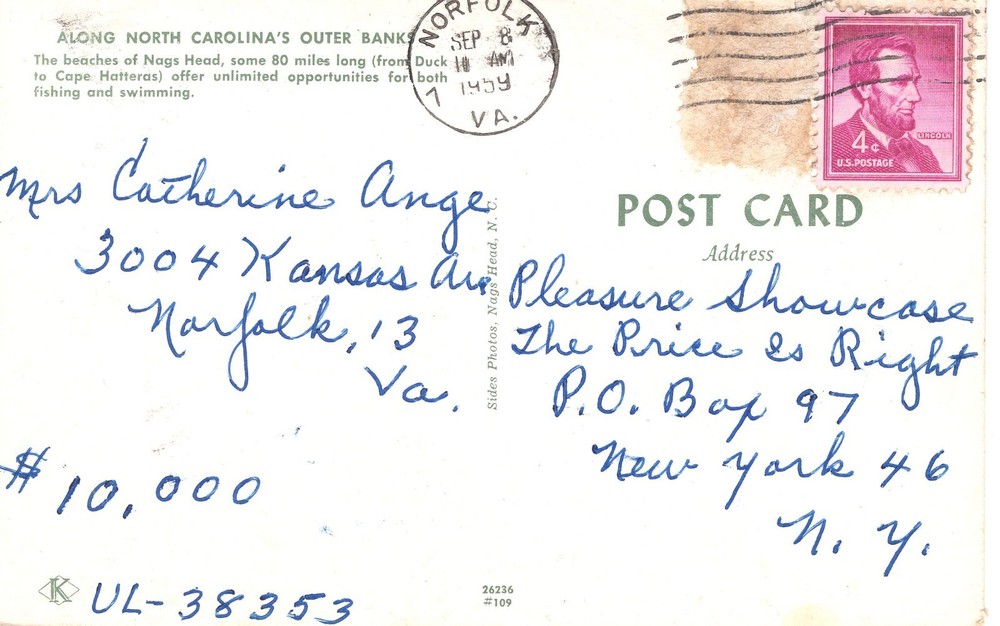 ALONG NORTH CAROLINA'S OUTER BANKS
The beaches of Nags Head, some 80 miles long (from Duck
to Cape Hatteras) offer unlimited opportunities for both
fishing and swimming.
NORFOLK
SEP 8
11 AM
1959
7
VA.
LINCOLN
4¢
U.S. POSTAGE
Mrs Catherine Ange
3004 Kansas Av
Norfolk, 13
Va.
$10,000
UL-38353
K
Sides Photos, Nags Head, N. C.
26236
#109
POST CARD
Address
Pleasure Showcase
The Price Is Right
P.O. Box 97
New York 46
N. Y.